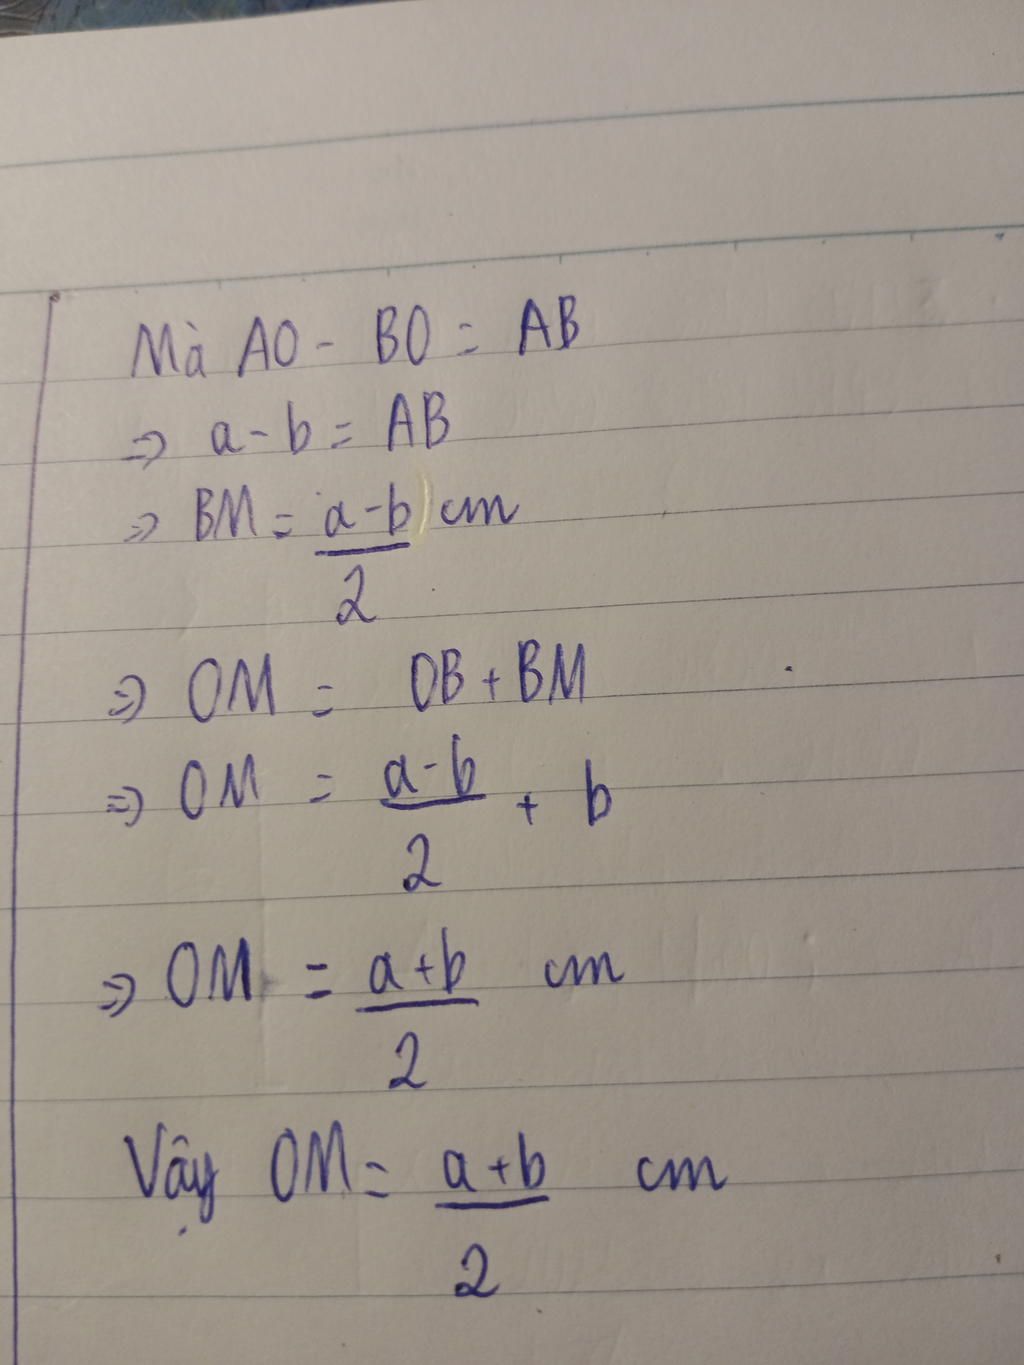 Mà AO - BO = AB
=> a - b = AB
=> BM = a - b cm
2
=> OM = OB + BM
=> OM = a - b + b
2
=> OM = a + b cm
2
Vậy OM = a + b cm
2